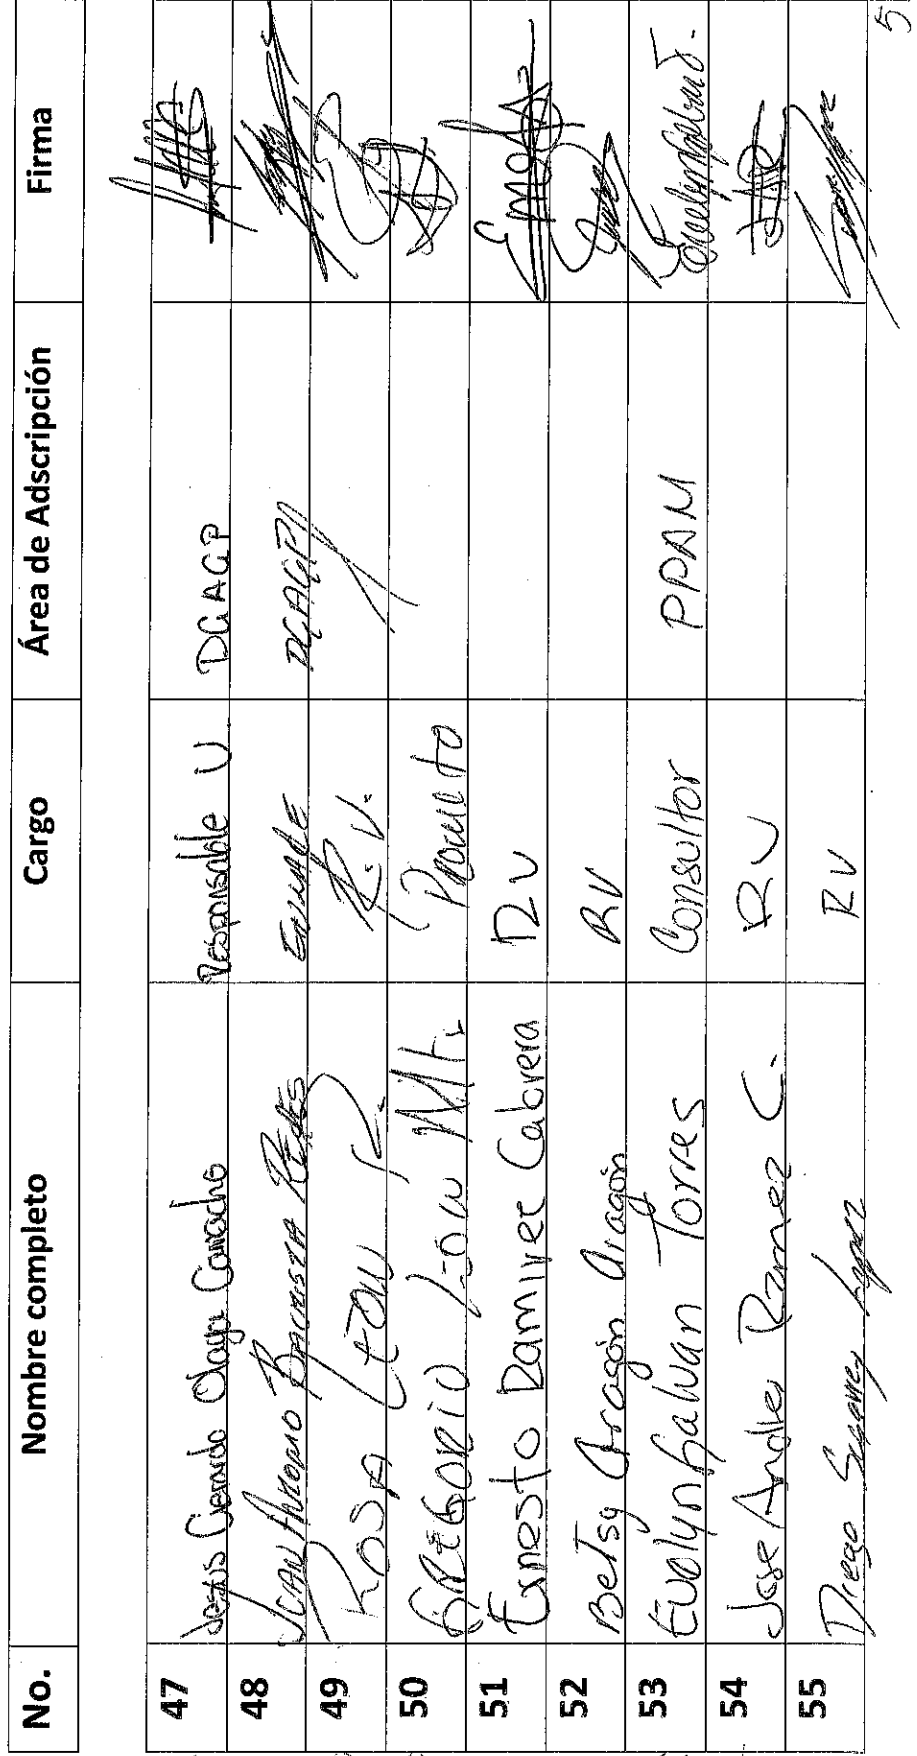 No. Nombre completo Cargo Área de Adscripción Firma
47 Jesus Gerardo Olayo Camacho Responsable U DGAGP
48 Juan Antonio Bautista Enlace DGAGP
49 Rosa León R. R.V.
50 GREGORIO León
51 Ernesto Ramirez Cabrera RV
52 Betsy Aragón Aragón RV
53 Evelyn Galvan Torres Consultor PPAM
54 Jose Andres Ramirez C. RV
55 Diego López RV
5